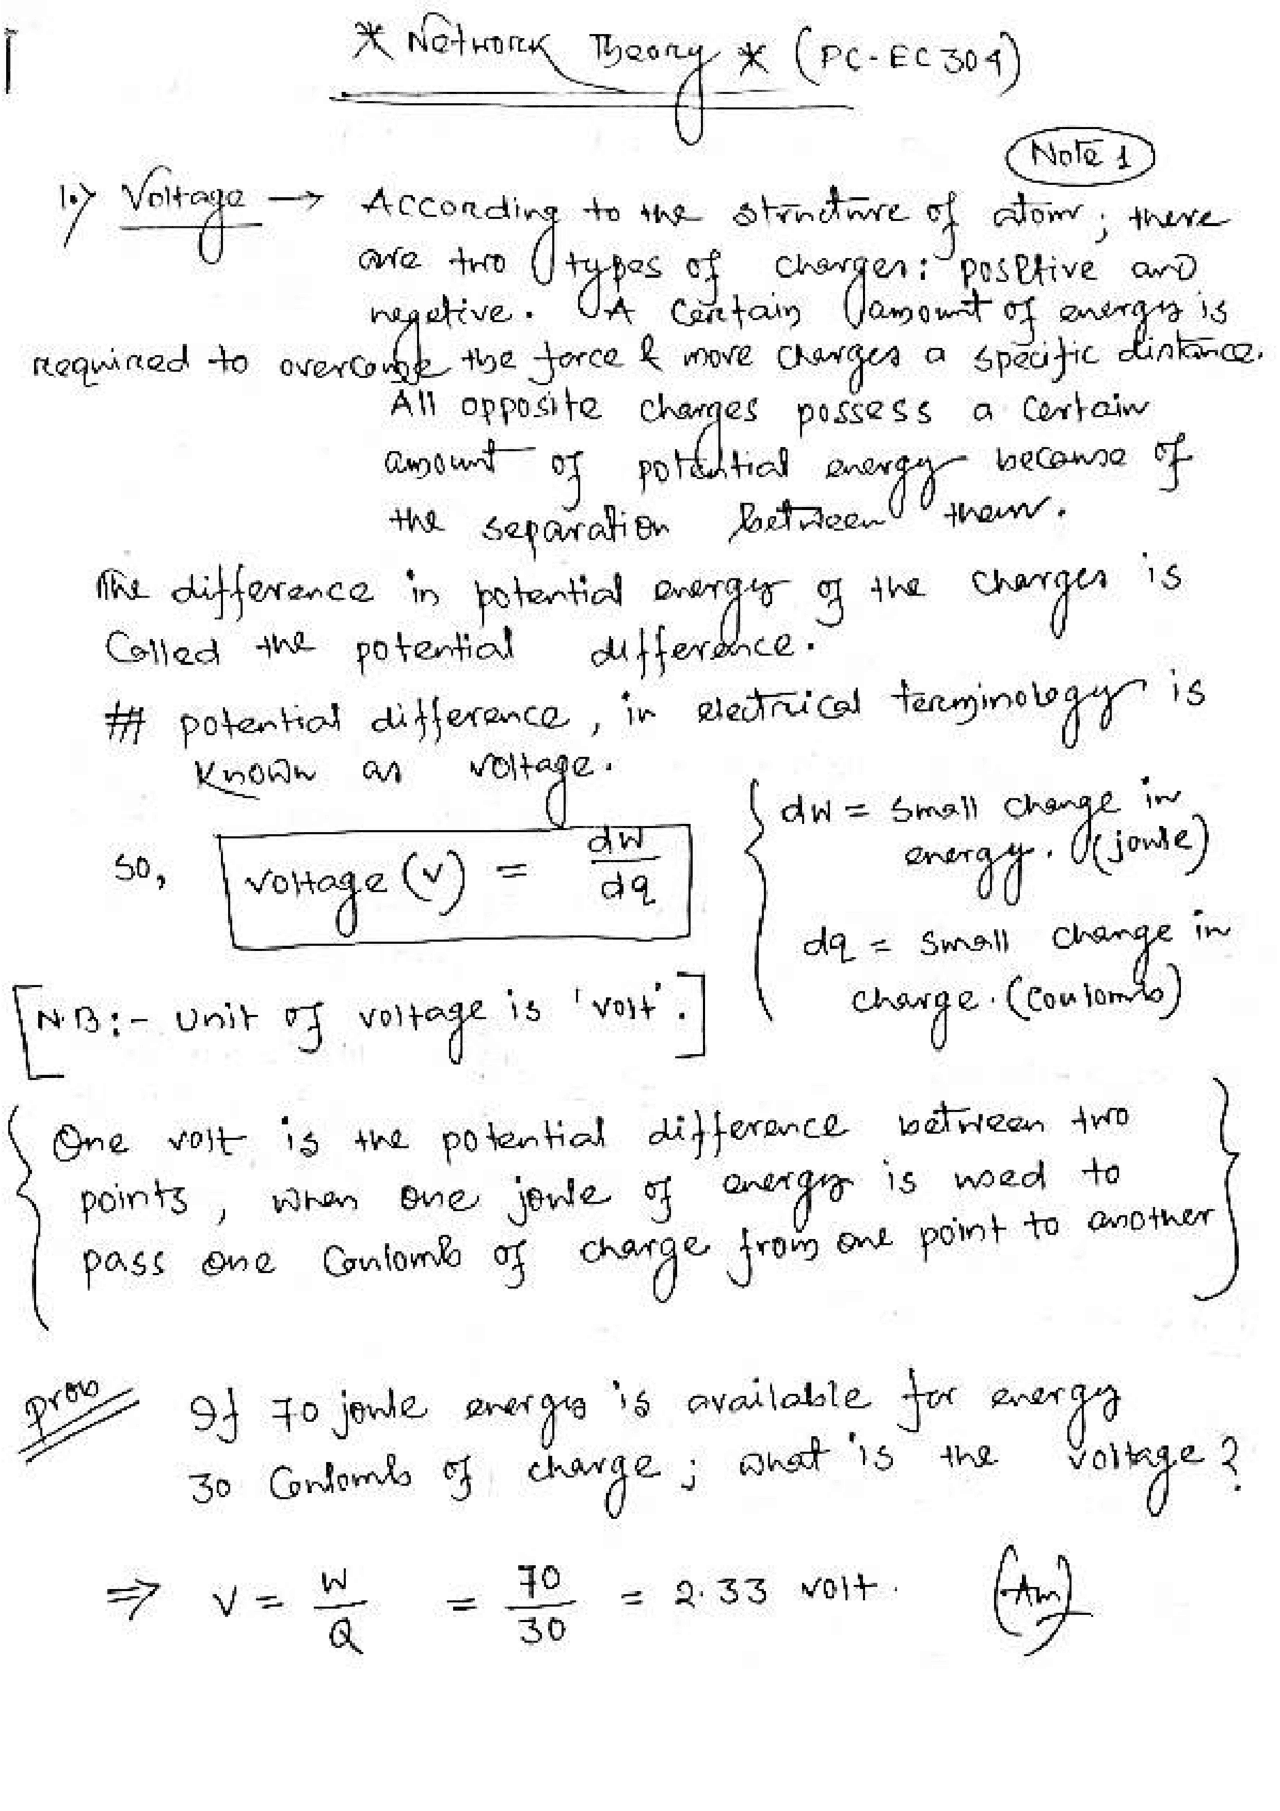 * Network Theory * (PC-EC304)
Note 1
1.) Voltage → According to the structure of atom; there
are two types of charges: positive and
negetive. A certain amount of energy is
required to overcome the force & move charges a specific distance.
All opposite charges possess a certain
amount of potential energy because of
the separation between them.
The difference in potential energy of the charges is
Called the potential difference.
# potential difference, in electrical terminology is
known as voltage.
so, voltage (v) = dw/dq
{ dw = small change in
energy. (joule)
dq = small change in
charge. (coulomb)
[N.B:- Unit of voltage is 'volt'.]
{ One volt is the potential difference between two
points, when one joule of energy is used to
pass one Coulomb of charge from one point to another }
prob If 70 joule energy is available for energy
30 Coulomb of charge; what is the voltage?
⇒ V = W/Q = 70/30 = 2.33 volt. (Ans)